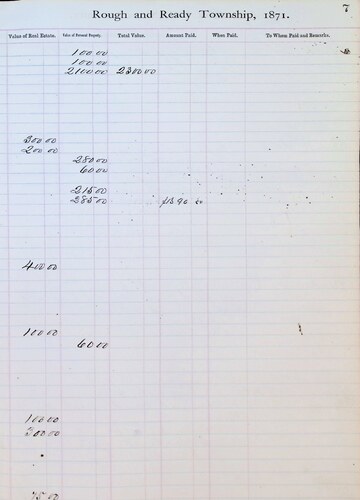 7
Rough and Ready Township, 1871.
Value of Real Estate. Value of Personal Property. Total Value. Amount Paid. When Paid. To Whom Paid and Remarks.
100 00
100 00
2100 00 2300 00
300 00
200 00
280 00
60 00
215 00
285 00
400 00
100 00
60 00
100 00
300 00
75 00